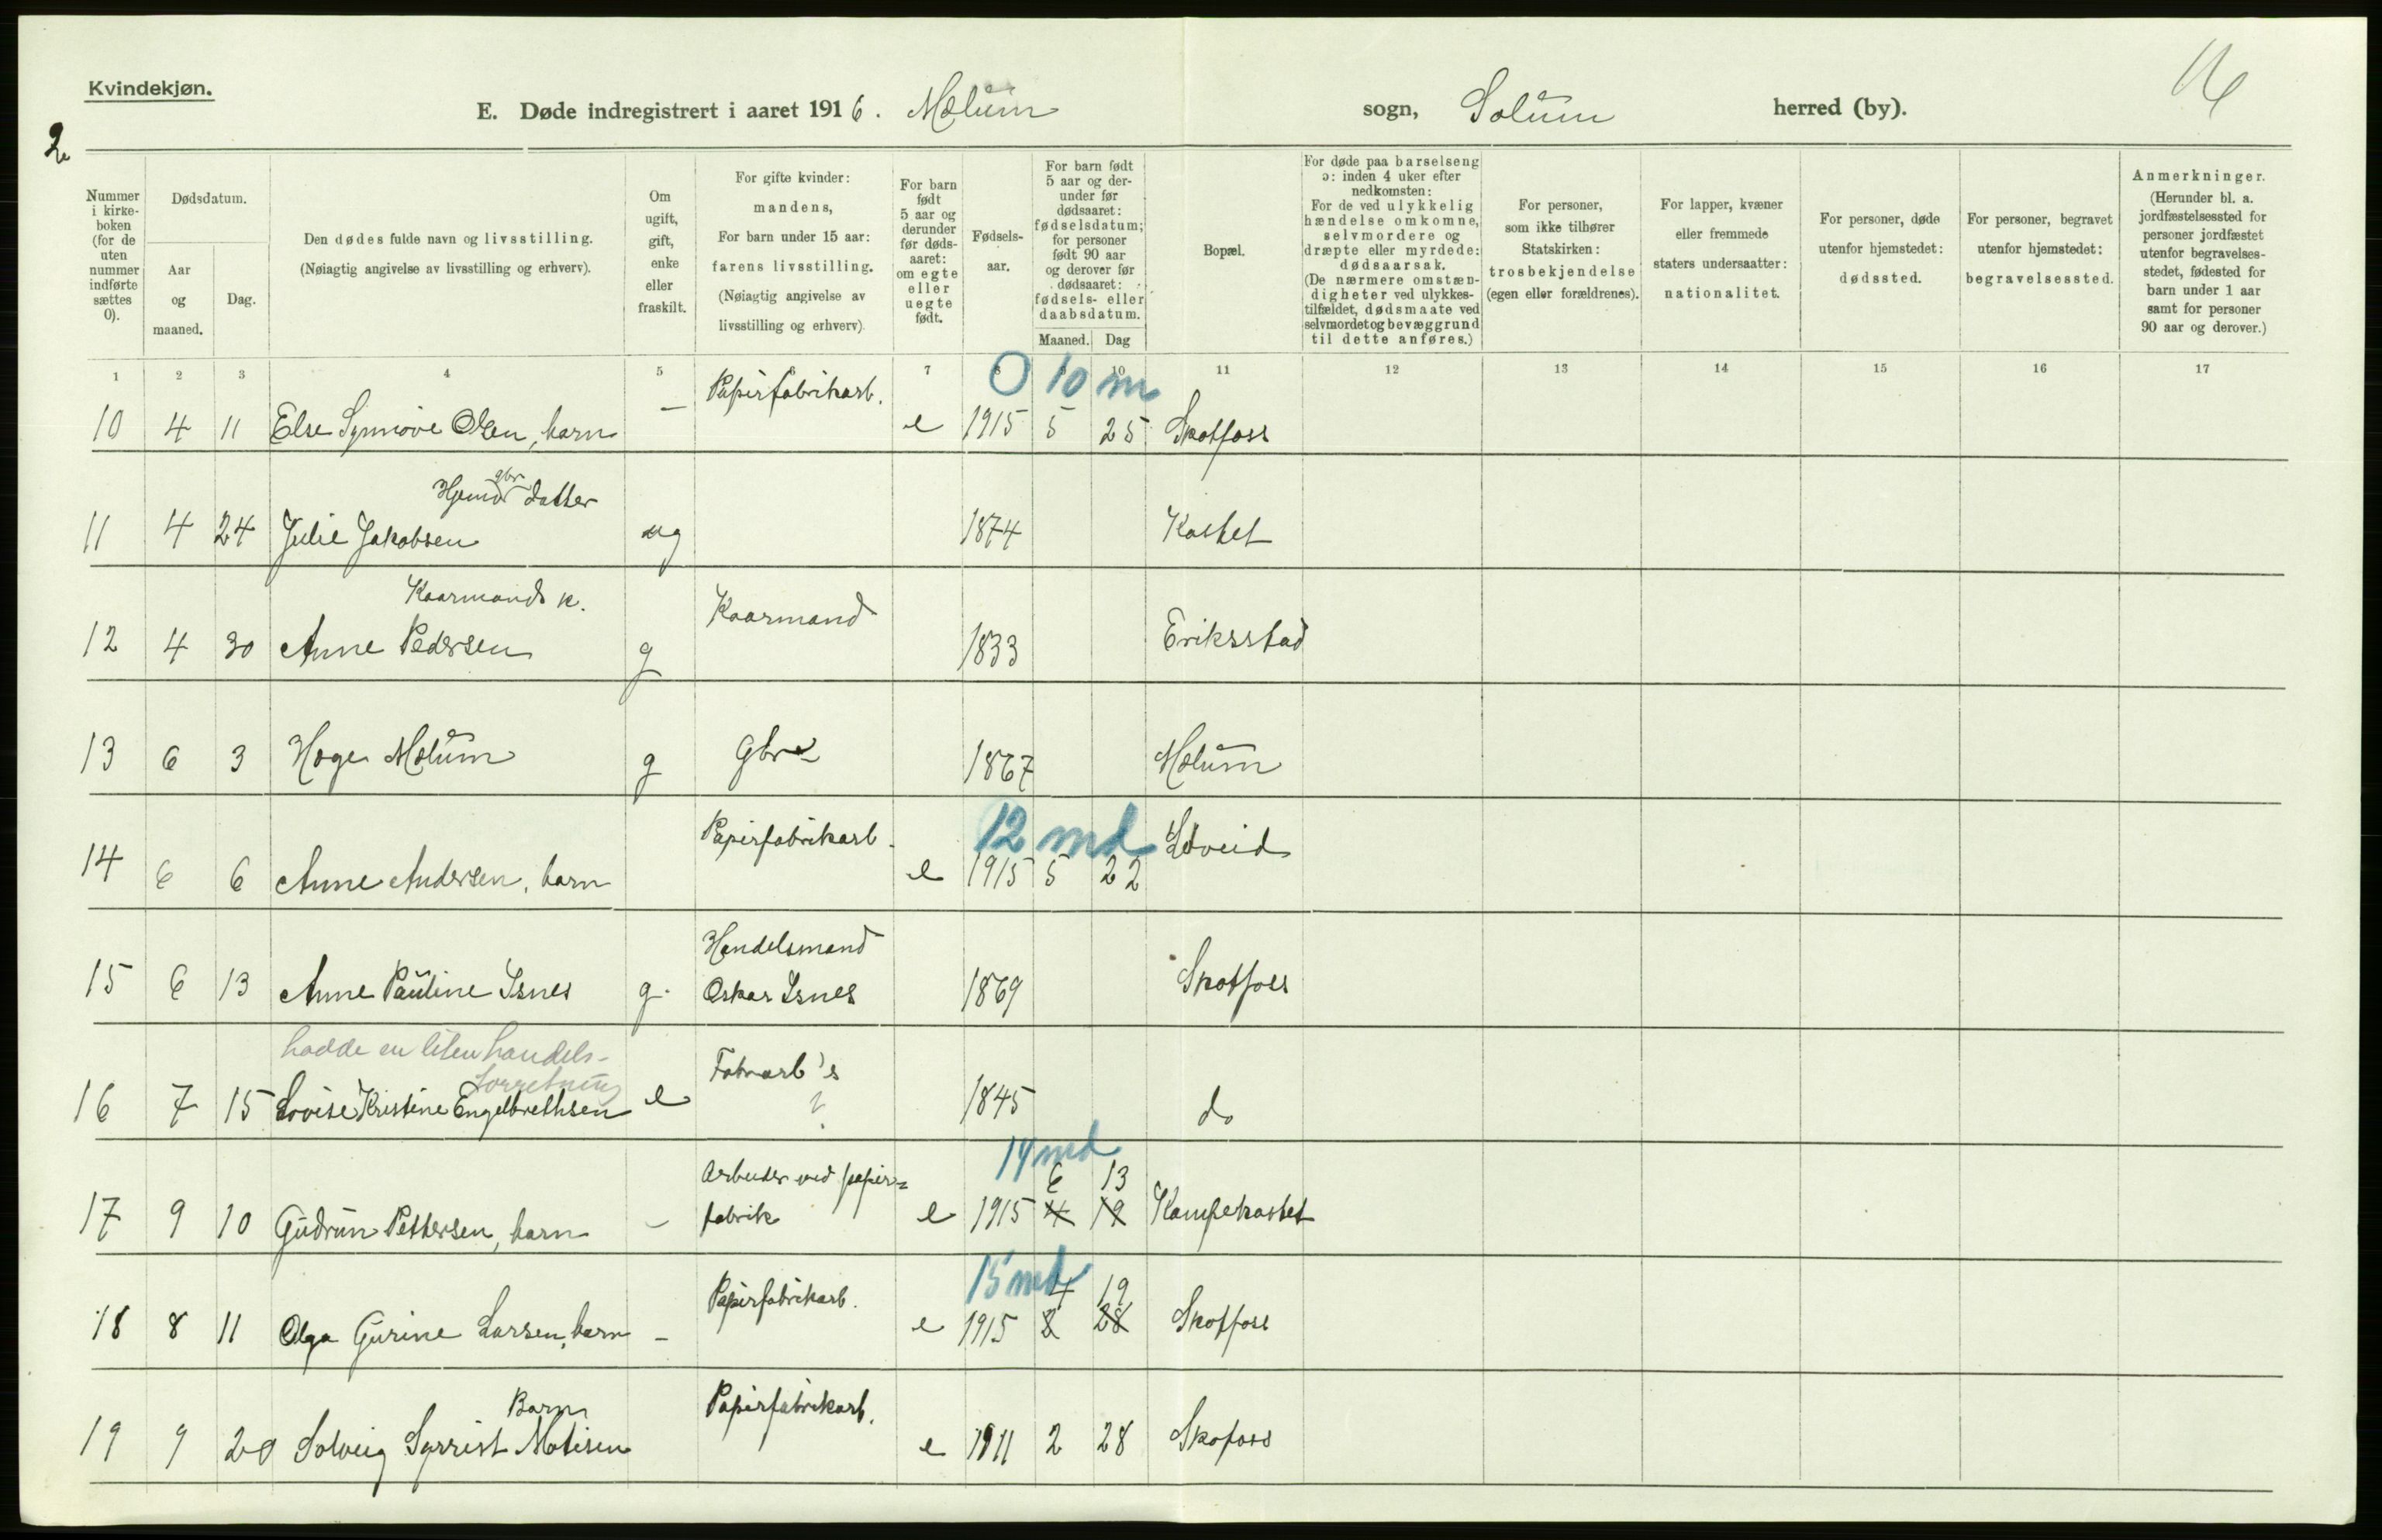 Kvindekjøn.
E. Døde indregistrert i aaret 1916. Mælum sogn, Solum herred (by).
2
Nummer i kirke-boken (for de uten nummer indførte sættes 0).
Dødsdatum.
Aar og maaned.
Dag.
Den dødes fulde navn og livsstilling.
(Nøiagtig angivelse av livsstilling og erhverv).
Om ugift, gift, enke eller fraskilt.
For gifte kvinder: mandens,
For barn under 15 aar: farens livsstilling.
(Nøiagtig angivelse av livsstilling og erhverv)
For barn født 5 aar og derunder før døds-aaret: om egte eller uegte født.
Fødsels-aar.
For barn født 5 aar og der-under før dødsaaret: fødselsdatum; for personer født 90 aar og derover før dødsaaret: fødsels- eller daabsdatum.
Maaned. Dag
Bopæl.
For døde paa barselseng ɔ: inden 4 uker efter nedkomsten:
For de ved ulykkelig hændelse omkomne, selvmordere og dræpte eller myrdede: dødsaarsak.
(De nærmere omstæn-digheter ved ulykkes-tilfældet, dødsmaate ved selvmordet og bevæggrund til dette anføres.)
For personer, som ikke tilhører Statskirken: trosbekjendelse (egen eller forældrenes).
For lapper, kvæner eller fremmede staters undersaatter: nationalitet.
For personer, døde utenfor hjemstedet: dødssted.
For personer, begravet utenfor hjemstedet: begravelsessted.
Anmerkninger.
(Herunder bl. a. jordfæstelsessted for personer jordfæstet utenfor begravelses-stedet, fødested for barn under 1 aar samt for personer 90 aar og derover.)
1 2 3 4 5 7 8 9 10 11 12 13 14 15 16 17
Papirfabrikarb. 0 10 m
10 4 11 Else Synnøve Olsen, barn — e 1915 5 25 Skotfoss
gbr
Hjemv datter
11 4 24 Julie Jakobsen ug 1874 Kastet
Kaarmands k. Kaarmand
12 4 30 Anne Pedersen g 1833 Eriksstad
13 6 3 Hæge Mælum g Gbr 1867 Mælum
Papirfabrikarb. 12 md
14 6 6 Anne Andersen, barn e 1915 5 22
Handelsmand
15 6 13 Anne Pauline Isnes g. Oskar Isnes 1869 Skotfoss
hadde en liten handels-
forretning Fabrarb's
16 7 15 Lovise Kristine Engelbrethsen e ? 1845 do
Arbeider ved papir= 14 md 6 13
17 9 10 Gudrun Pettersen, barn - fabrik e 1915 4 19 Kampekastet
Papirfabrikarb. 15 md 4 19
18 8 11 Olga Gurine Larsen, barn - e 1915 2 28 Skotfoss
Barn Papirfabrikarb.
19 9 20 Solveig Synnist Matisen e 1911 2 28 Skofoss